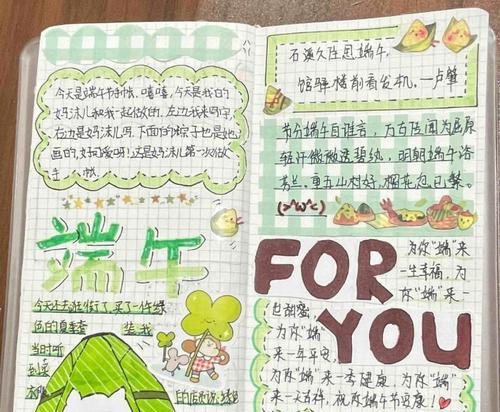 今天是端午节啦,嘻嘻,今天是我白的
好沫儿和我一起做的,左边我来写字,
右边是好沫儿写,下面的粽子也是她
画的,好可爱呀!这是好沫儿第一次做
手 啦
端午
今天还去逛街了,买了一件绿
色的
装,我
当时听
去读
衣服
的店
石溪久住思端午,
馆驿楼前看发机。—卢肇
节分端午自谁言,万古传闻为屈原
轻汗微微透碧纨,明朝端午浴
芳兰。重五山村好,榴花忽已繁。
(>^ω^<)
FOR
YOU
为你“端”来
一生幸福,为
你“端”来一
为你“端”
来一年平安,
为你“端”来一季健康,为你“端”
来一太吉祥,祝你端午节安康!